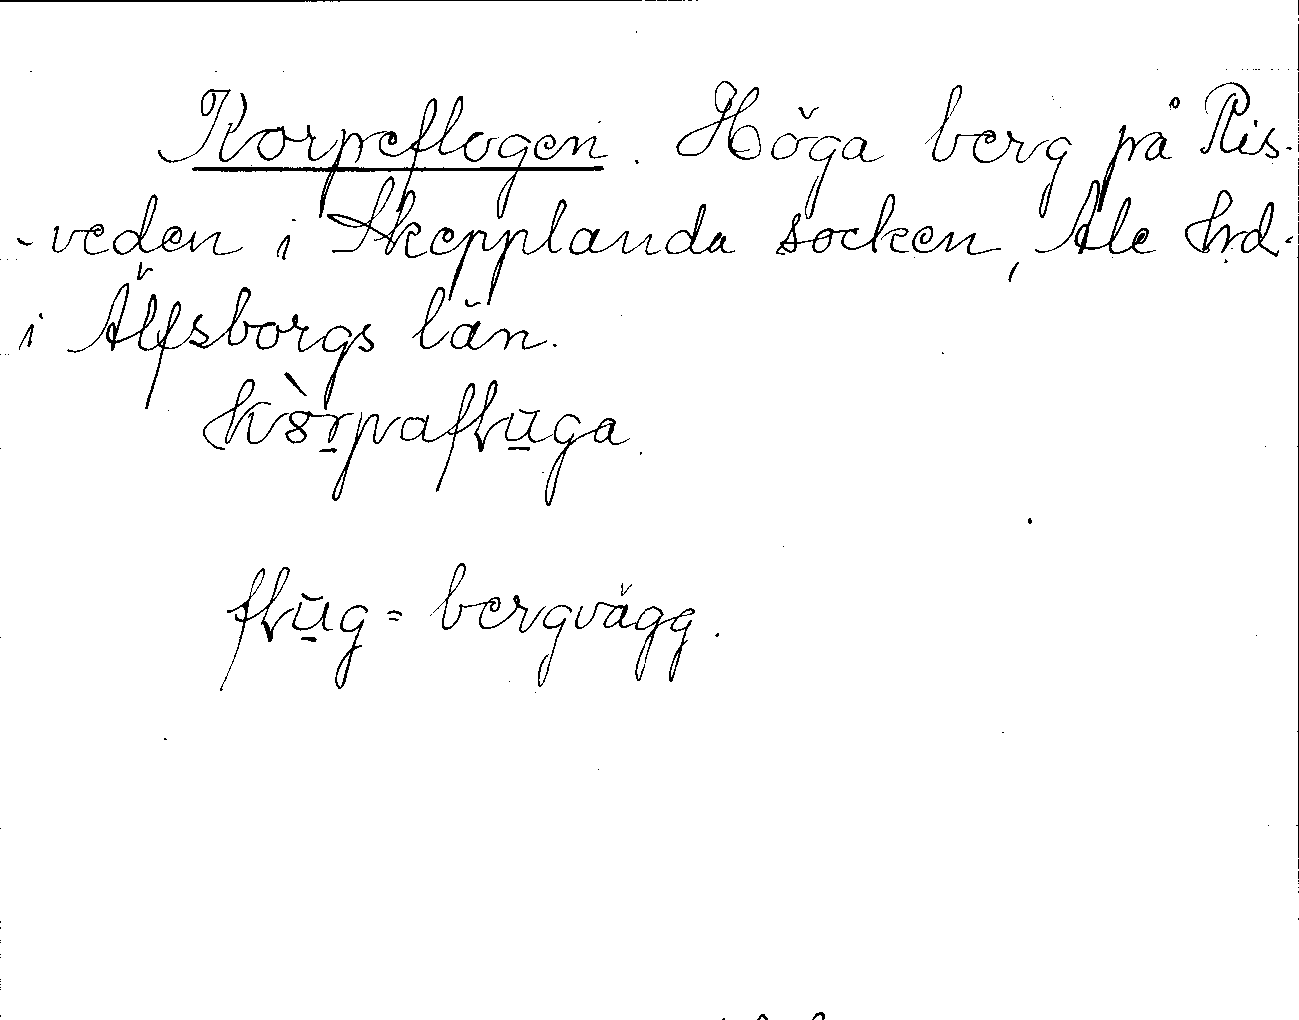 Korpeflogen. Höga berg på Ris-
-veden i Skepplanda socken, Ale hrd.
i Älfsborgs län.
kòrpaflūga.
flūg = bergvägg.